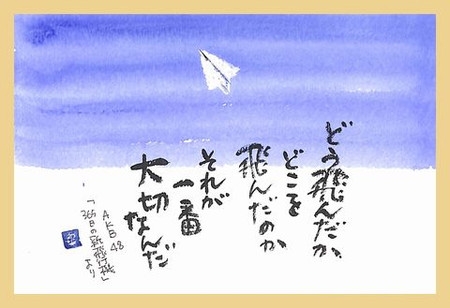 どう飛んだか
どこを
飛んだのか
それが
一番
大切なんだ
AKB48
「365日の紙飛行機」
より